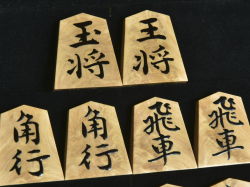 玉将 王将
角行 角行 飛車 飛車